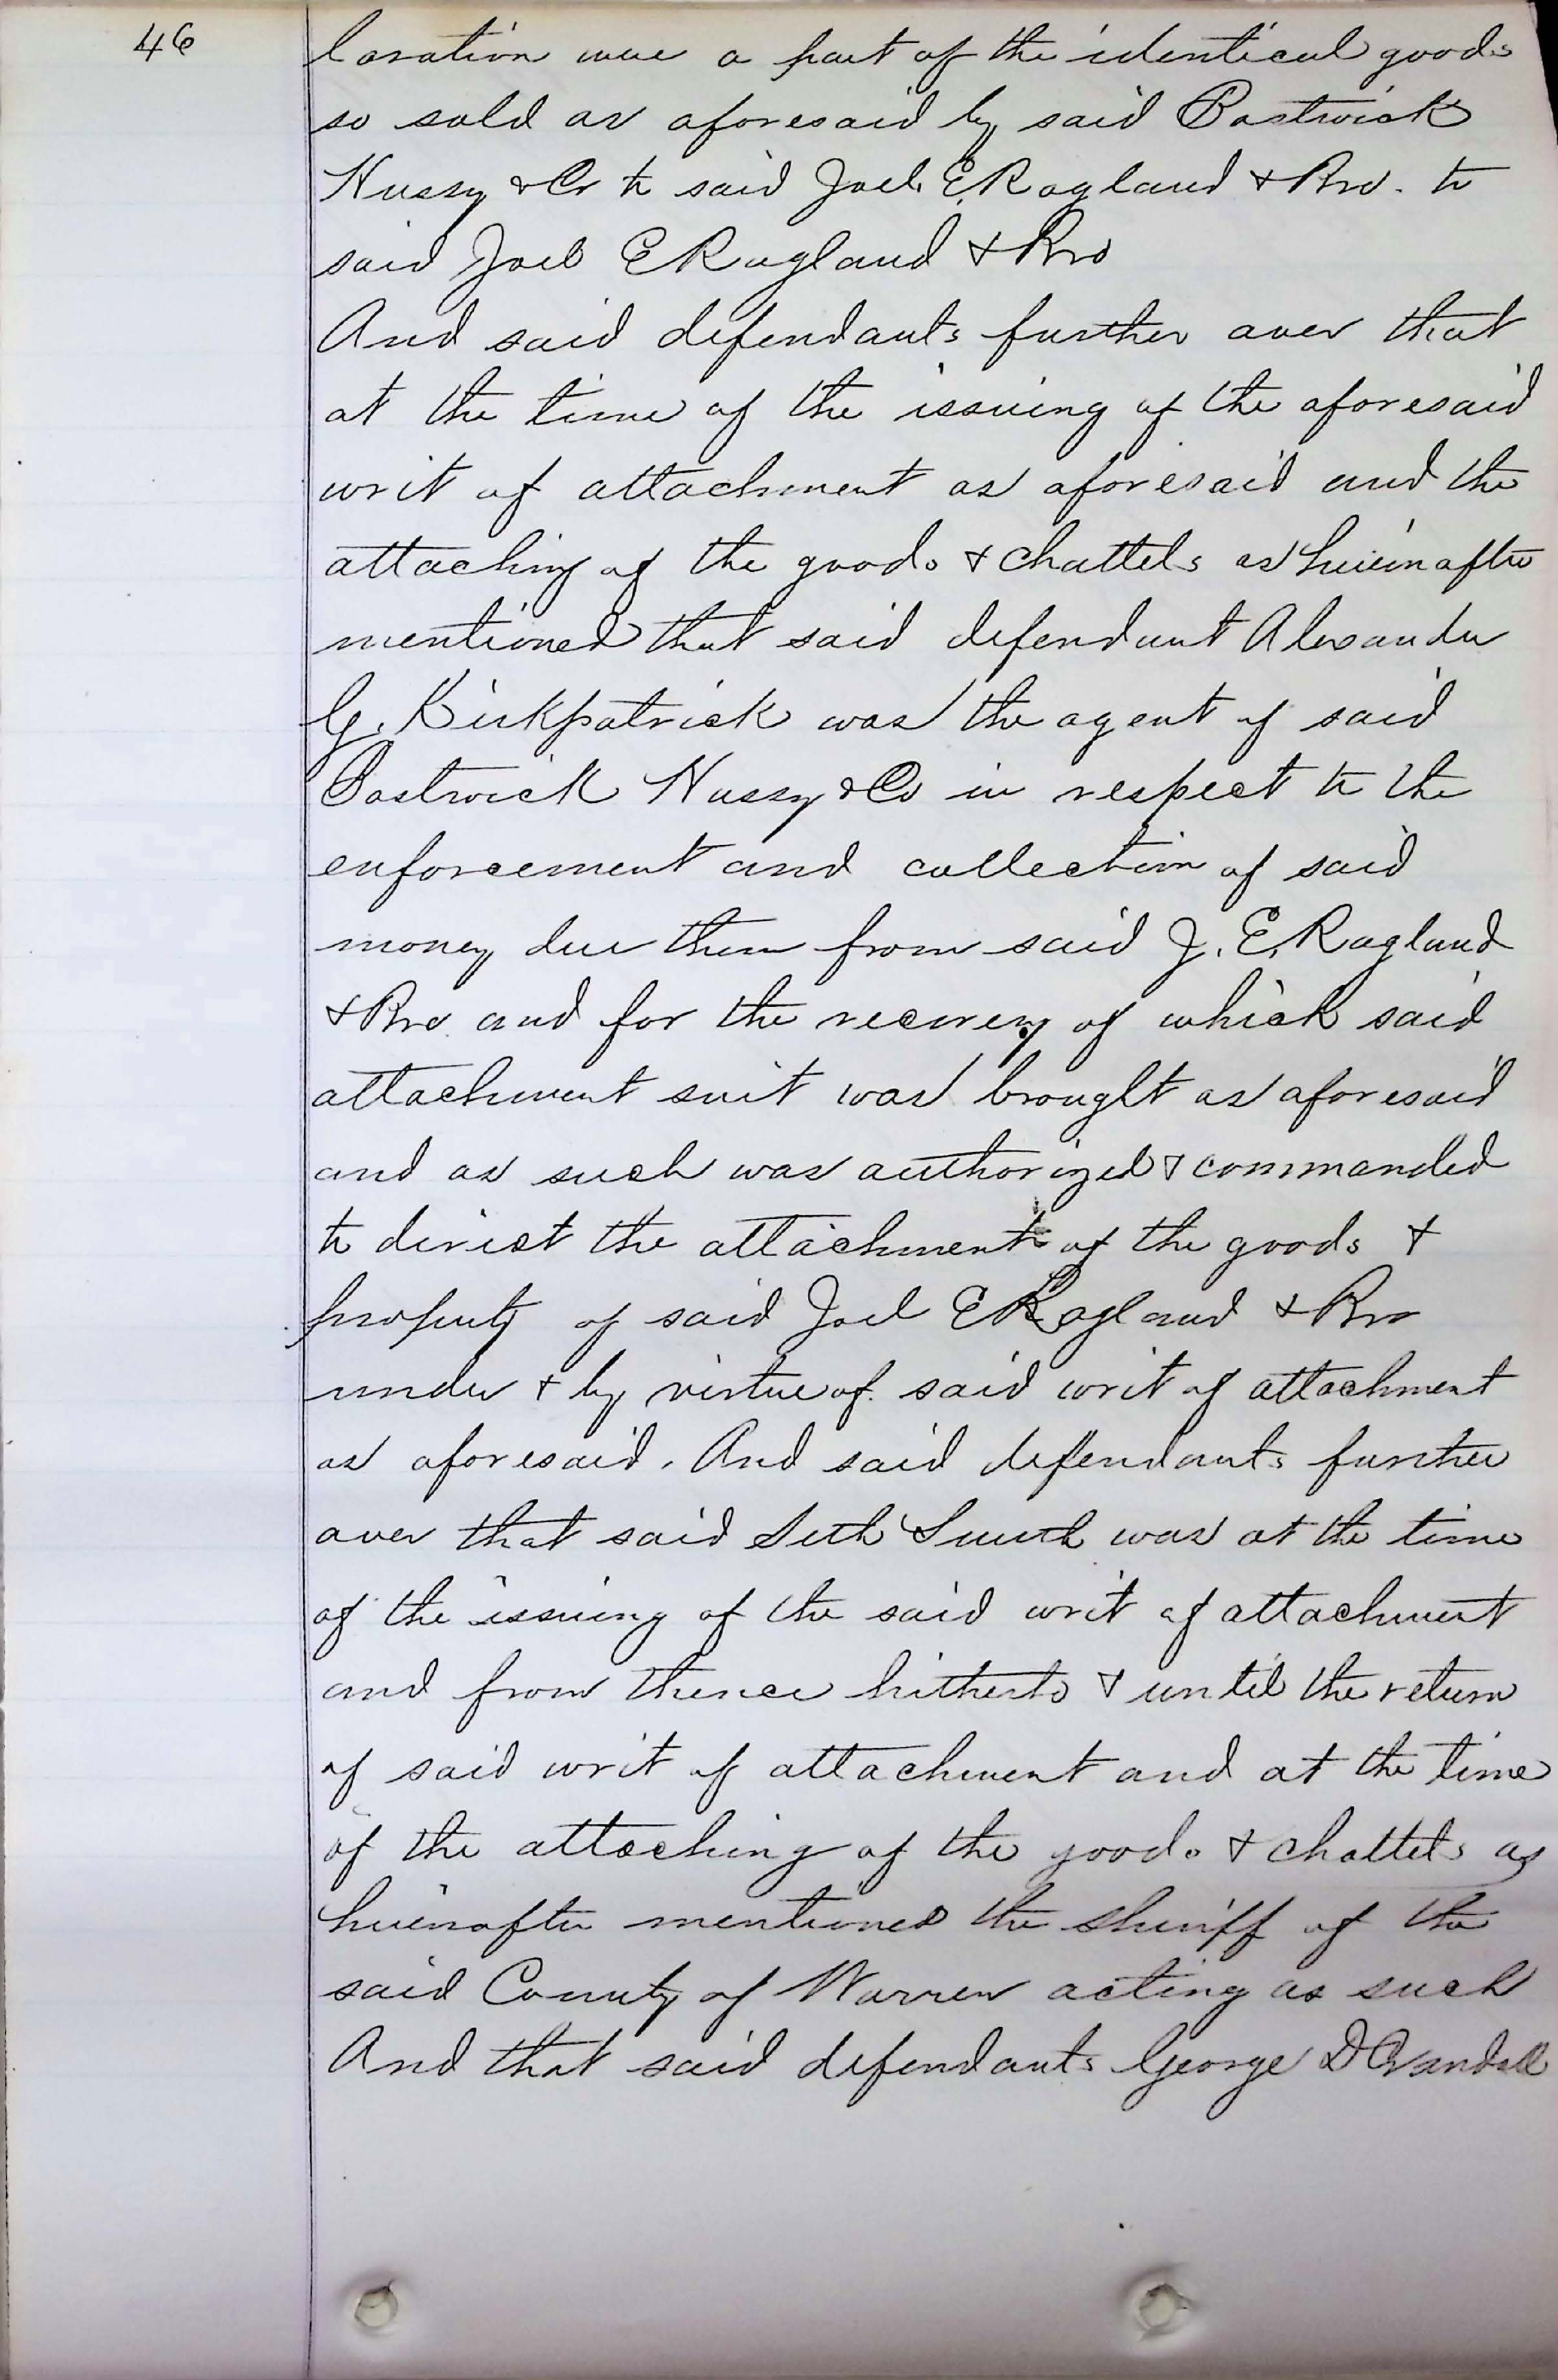 46
laration were a part of the identical goods
so sold as aforesaid by said Bostwick
Hussy & Co to said Joel E Ragland & Bro. to
said Joel E Ragland & Bro
And said defendants further aver that
at the time of the issuing of the aforesaid
writ of attachment as aforesaid and the
attaching of the goods & chattels as hereinafter
mentioned that said defendant Alexander
G. Kirkpatrick was the agent of said
Bostwick Hussy & Co in respect to the
enforcement and collection of said
money due them from said J. E. Ragland
& Bro and for the recovery of which said
attachment suit was brought as aforesaid
and as such was authorized & commanded
to direct the attachment of the goods &
property of said Joel E Ragland & Bro
under & by virtue of said writ of attachment
as aforesaid. And said defendants further
aver that said Seth Smith was at the time
of the issuing of the said writ of attachment
and from thence hitherto & until the return
of said writ of attachment and at the time
of the attaching of the goods & chattels as
hereinafter mentioned the sheriff of the
said County of Warren acting as such
And that said defendants George D Crandall